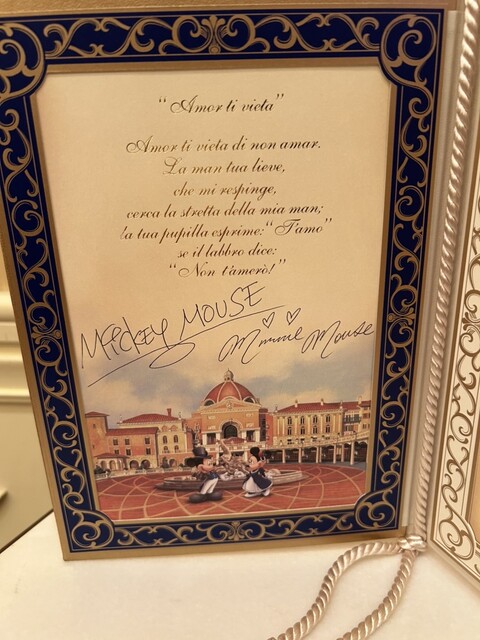 “Amor ti vieta”
Amor ti vieta di non amar.
La man tua lieve,
che mi respinge,
cerca la stretta della mia man;
la tua pupilla esprime: “T'amo”
se il labbro dice:
“Non t'amerò!”
MICKEY MOUSE
Minnie Mouse